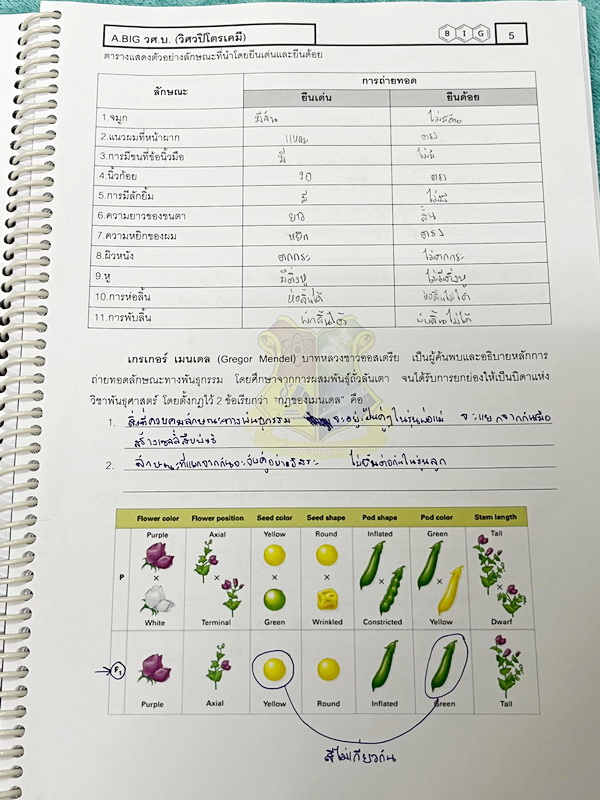 A.BIG วศ.บ. (วิศวปิโตรเคมี) B I G 5
ตารางแสดงตัวอย่างลักษณะที่นำโดยยีนเด่นและยีนด้อย
ลักษณะ การถ่ายทอด
ยีนเด่น ยีนด้อย
1.จมูก มีสัน ไม่มีสัน
2.แนวผมที่หน้าผาก แหลม ตรง
3.การมีขนที่ข้อนิ้วมือ มี ไม่มี
4.นิ้วก้อย งอ ตรง
5.การมีลักยิ้ม มี ไม่มี
6.ความยาวของขนตา ยาว สั้น
7.ความหยิกของผม หยิก ตรง
8.ผิวหนัง ตกกระ ไม่ตกกระ
9.หู มีติ่งหู ไม่มีติ่งหู
10.การห่อลิ้น ห่อลิ้นได้ ห่อลิ้นไม่ได้
11.การพับลิ้น พับลิ้นได้ พับลิ้นไม่ได้
เกรเกอร์ เมนเดล (Gregor Mendel) บาทหลวงชาวออสเตรีย เป็นผู้ค้นพบและอธิบายหลักการ
ถ่ายทอดลักษณะทางพันธุกรรม โดยศึกษาจากการผสมพันธุ์ถั่วลันเตา จนได้รับการยกย่องให้เป็นบิดาแห่ง
วิชาพันธุศาสตร์ โดยตั้งกฎไว้ 2 ข้อเรียกว่า "กฎของเมนเดล" คือ
1. สิ่งที่ควบคุมลักษณะทางพันธุกรรม จะอยู่เป็นคู่ๆ ในรุ่นพ่อแม่ จะแยกจากกันเมื่อ
สร้างเซลล์สืบพันธุ์
2. ลักษณะที่แยกจากกันจะจับคู่อย่างอิสระ ไม่ขึ้นต่อกันในรุ่นลูก
Flower color Flower position Seed color Seed shape Pod shape Pod color Stem length
Purple Axial Yellow Round Inflated Green Tall
P × × × × × × ×
White Terminal Green Wrinkled Constricted Yellow Dwarf
F1
Purple Axial Yellow Round Inflated Green Tall
สีไม่เกี่ยวกัน